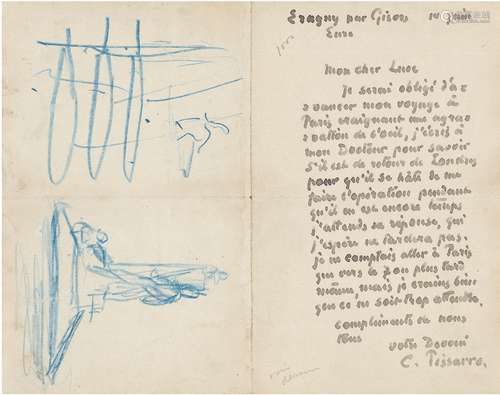 Eragny par Gisors 10 juin
Eure
Mon cher Luce
Je serai obligé d'a-
vancer mon voyage à
Paris craignant une aggra-
vation de l'oeil, j'écris à
mon Docteur pour savoir
s'il est de retour de Londres
pour qu'il se hâte de me
faire l'opération pendant
qu'il en est encore temps
j'attends sa réponse, qui
j'espère ne tardera pas.
je ne comptais aller à Paris
que vers le 20 ou plus tard
même, mais je crains bien
que ce ne soit trop attendre.
compliments de nous
tous
votre Dévoué
C. Pissarro.